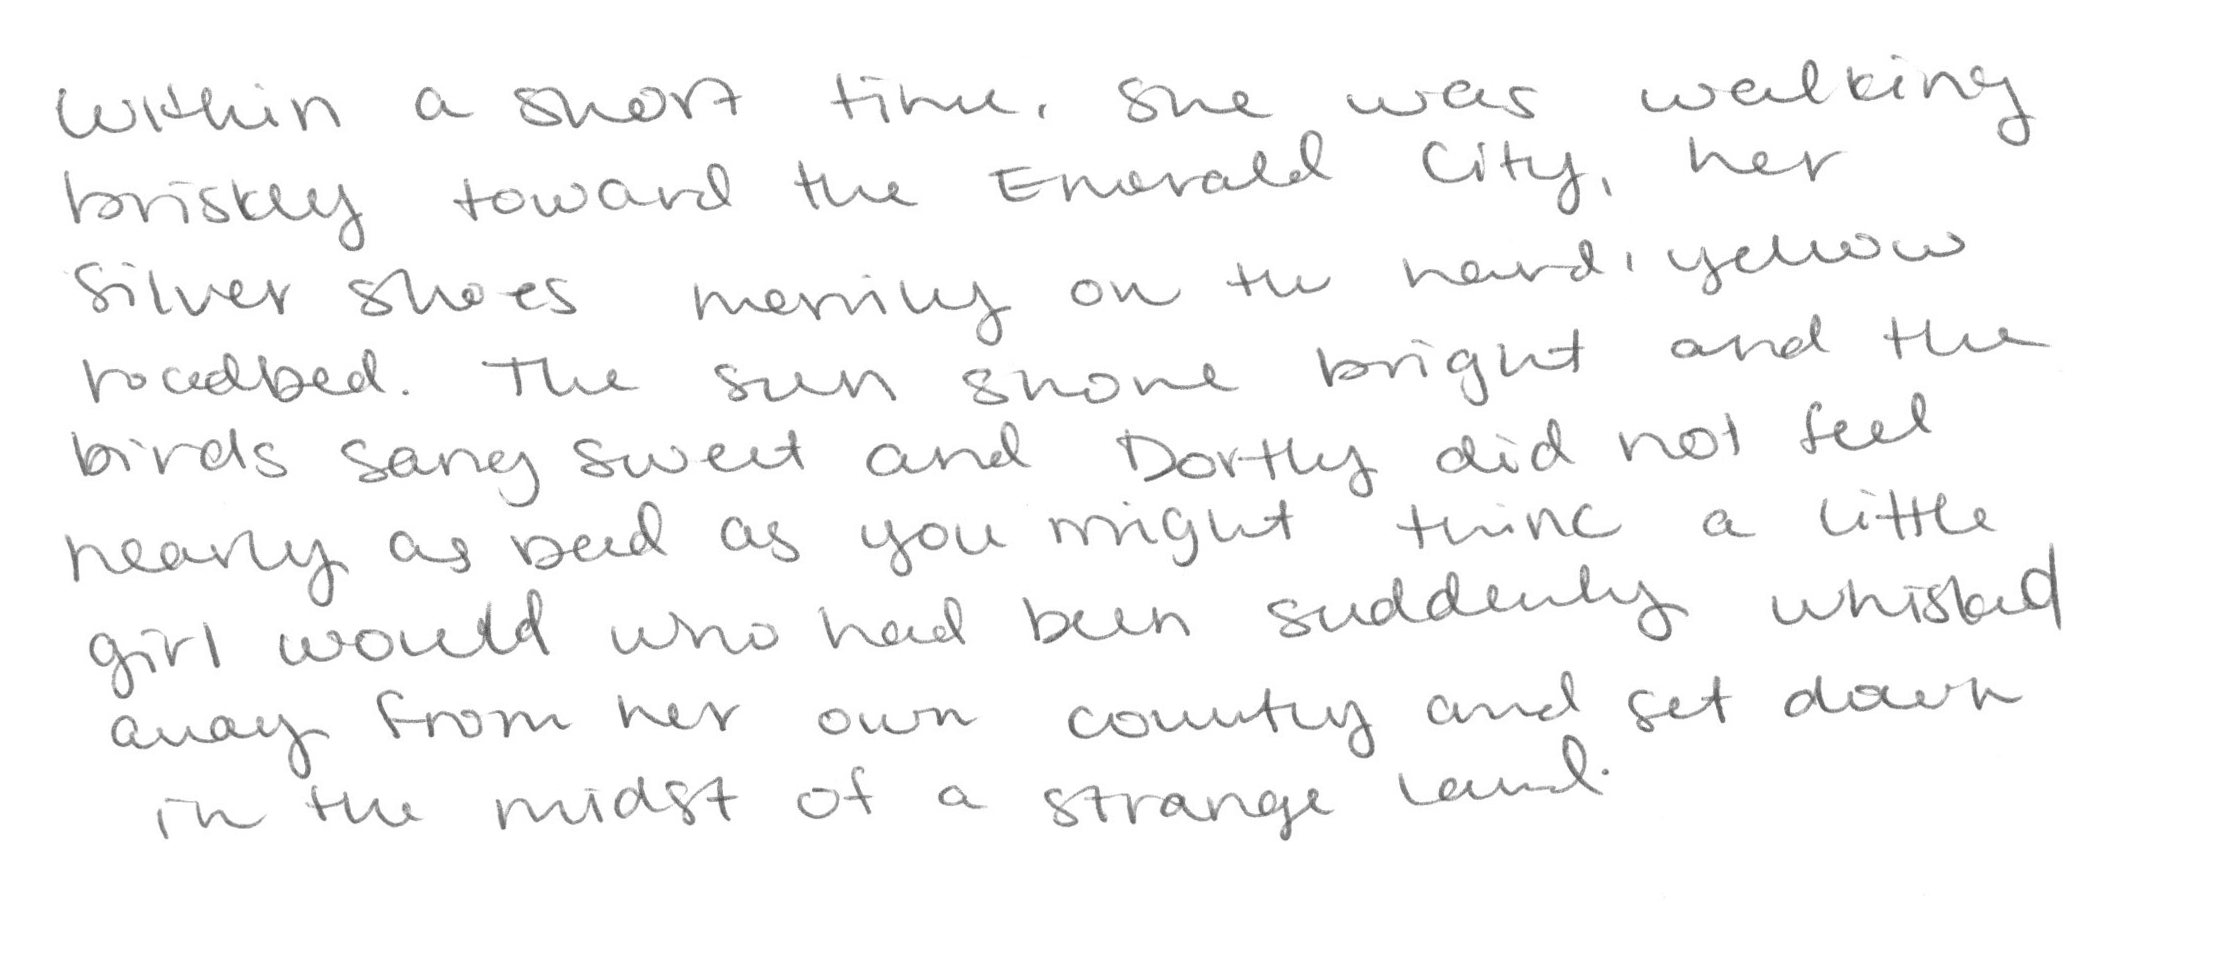 Within a short time, she was walking
briskly toward the Emerald City, her
Silver shoes merrily on the hard, yellow
roadbed. The sun shone bright and the
birds sang sweet and Dortly did not feel
nearly as bad as you might think a little
girl would who had been suddenly whisked
away from her own country and set down
in the midst of a strange land.